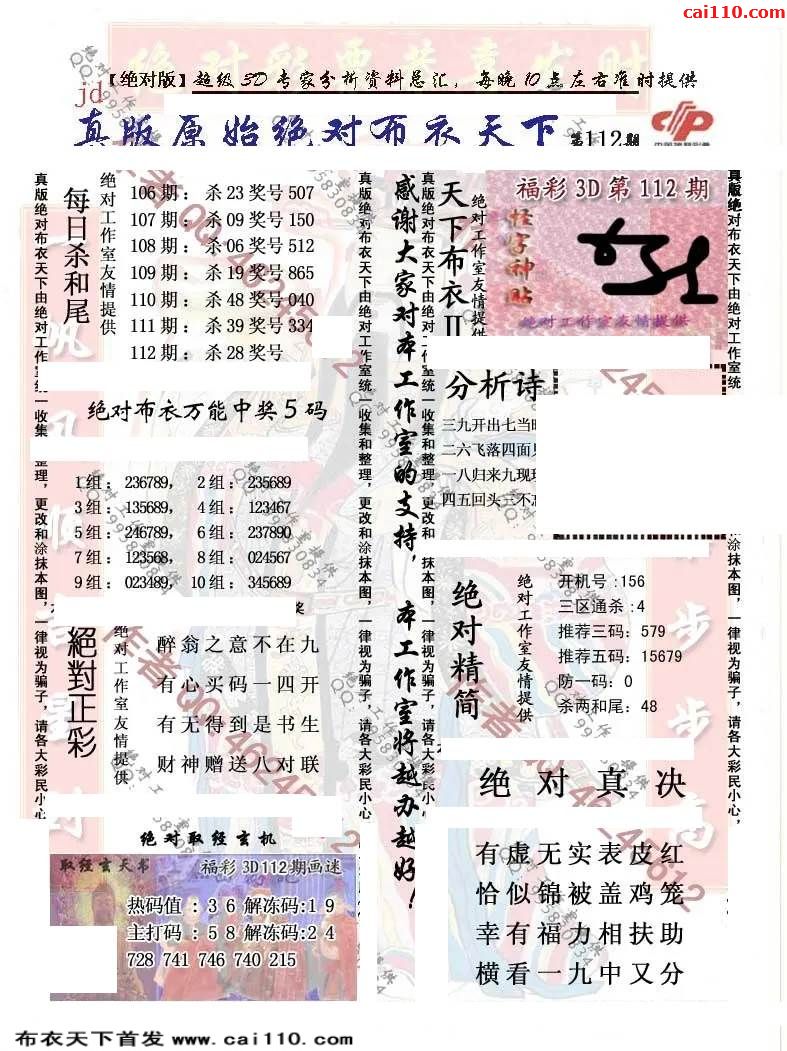 cai110.com
【绝对版】超级3D专家分析资料总汇，每晚10点左右准时提供
jd
真版原始绝对布衣天下 第112期
真版绝对布衣天下由绝对工作室统一收集和整理，更改和涂抹本图，一律视为骗子，请各大彩民小心
每日杀和尾
绝对工作室友情提供
106期：杀23奖号507
107期：杀09奖号150
108期：杀06奖号512
109期：杀19奖号865
110期：杀48奖号040
111期：杀39奖号334
112期：杀28奖号
绝对布衣万能中奖5码
1组：236789， 2组：235689
3组：135689， 4组：123467
5组：246789， 6组：237890
7组：123568， 8组：024567
9组：023489， 10组：345689
絕對正彩
绝对工作室友情提供
醉翁之意不在九
有心买码一四开
有无得到是书生
财神赠送八对联
绝对取经玄机
取经玄天书 福彩3D112期画迷
热码值：3 6 解冻码:1 9
主打码：5 8 解冻码:2 4
728 741 746 740 215
感谢大家对本工作室的支持，本工作室将越办越好！
天下布衣II
绝对工作室友情提供
福彩3D第112期
怪字神贴
绝对工作室友情提供
分析诗
三九开出七当
二六飞落四面
一八归来九现
四五回头三不
绝对精简
绝对工作室友情提供
开机号:156
三区通杀:4
推荐三码：579
推荐五码：15679
防一码：0
杀两和尾：48
绝对真决
有虚无实表皮红
恰似锦被盖鸡笼
幸有福力相扶助
横看一九中又分
布衣天下首发 www.cai110.com